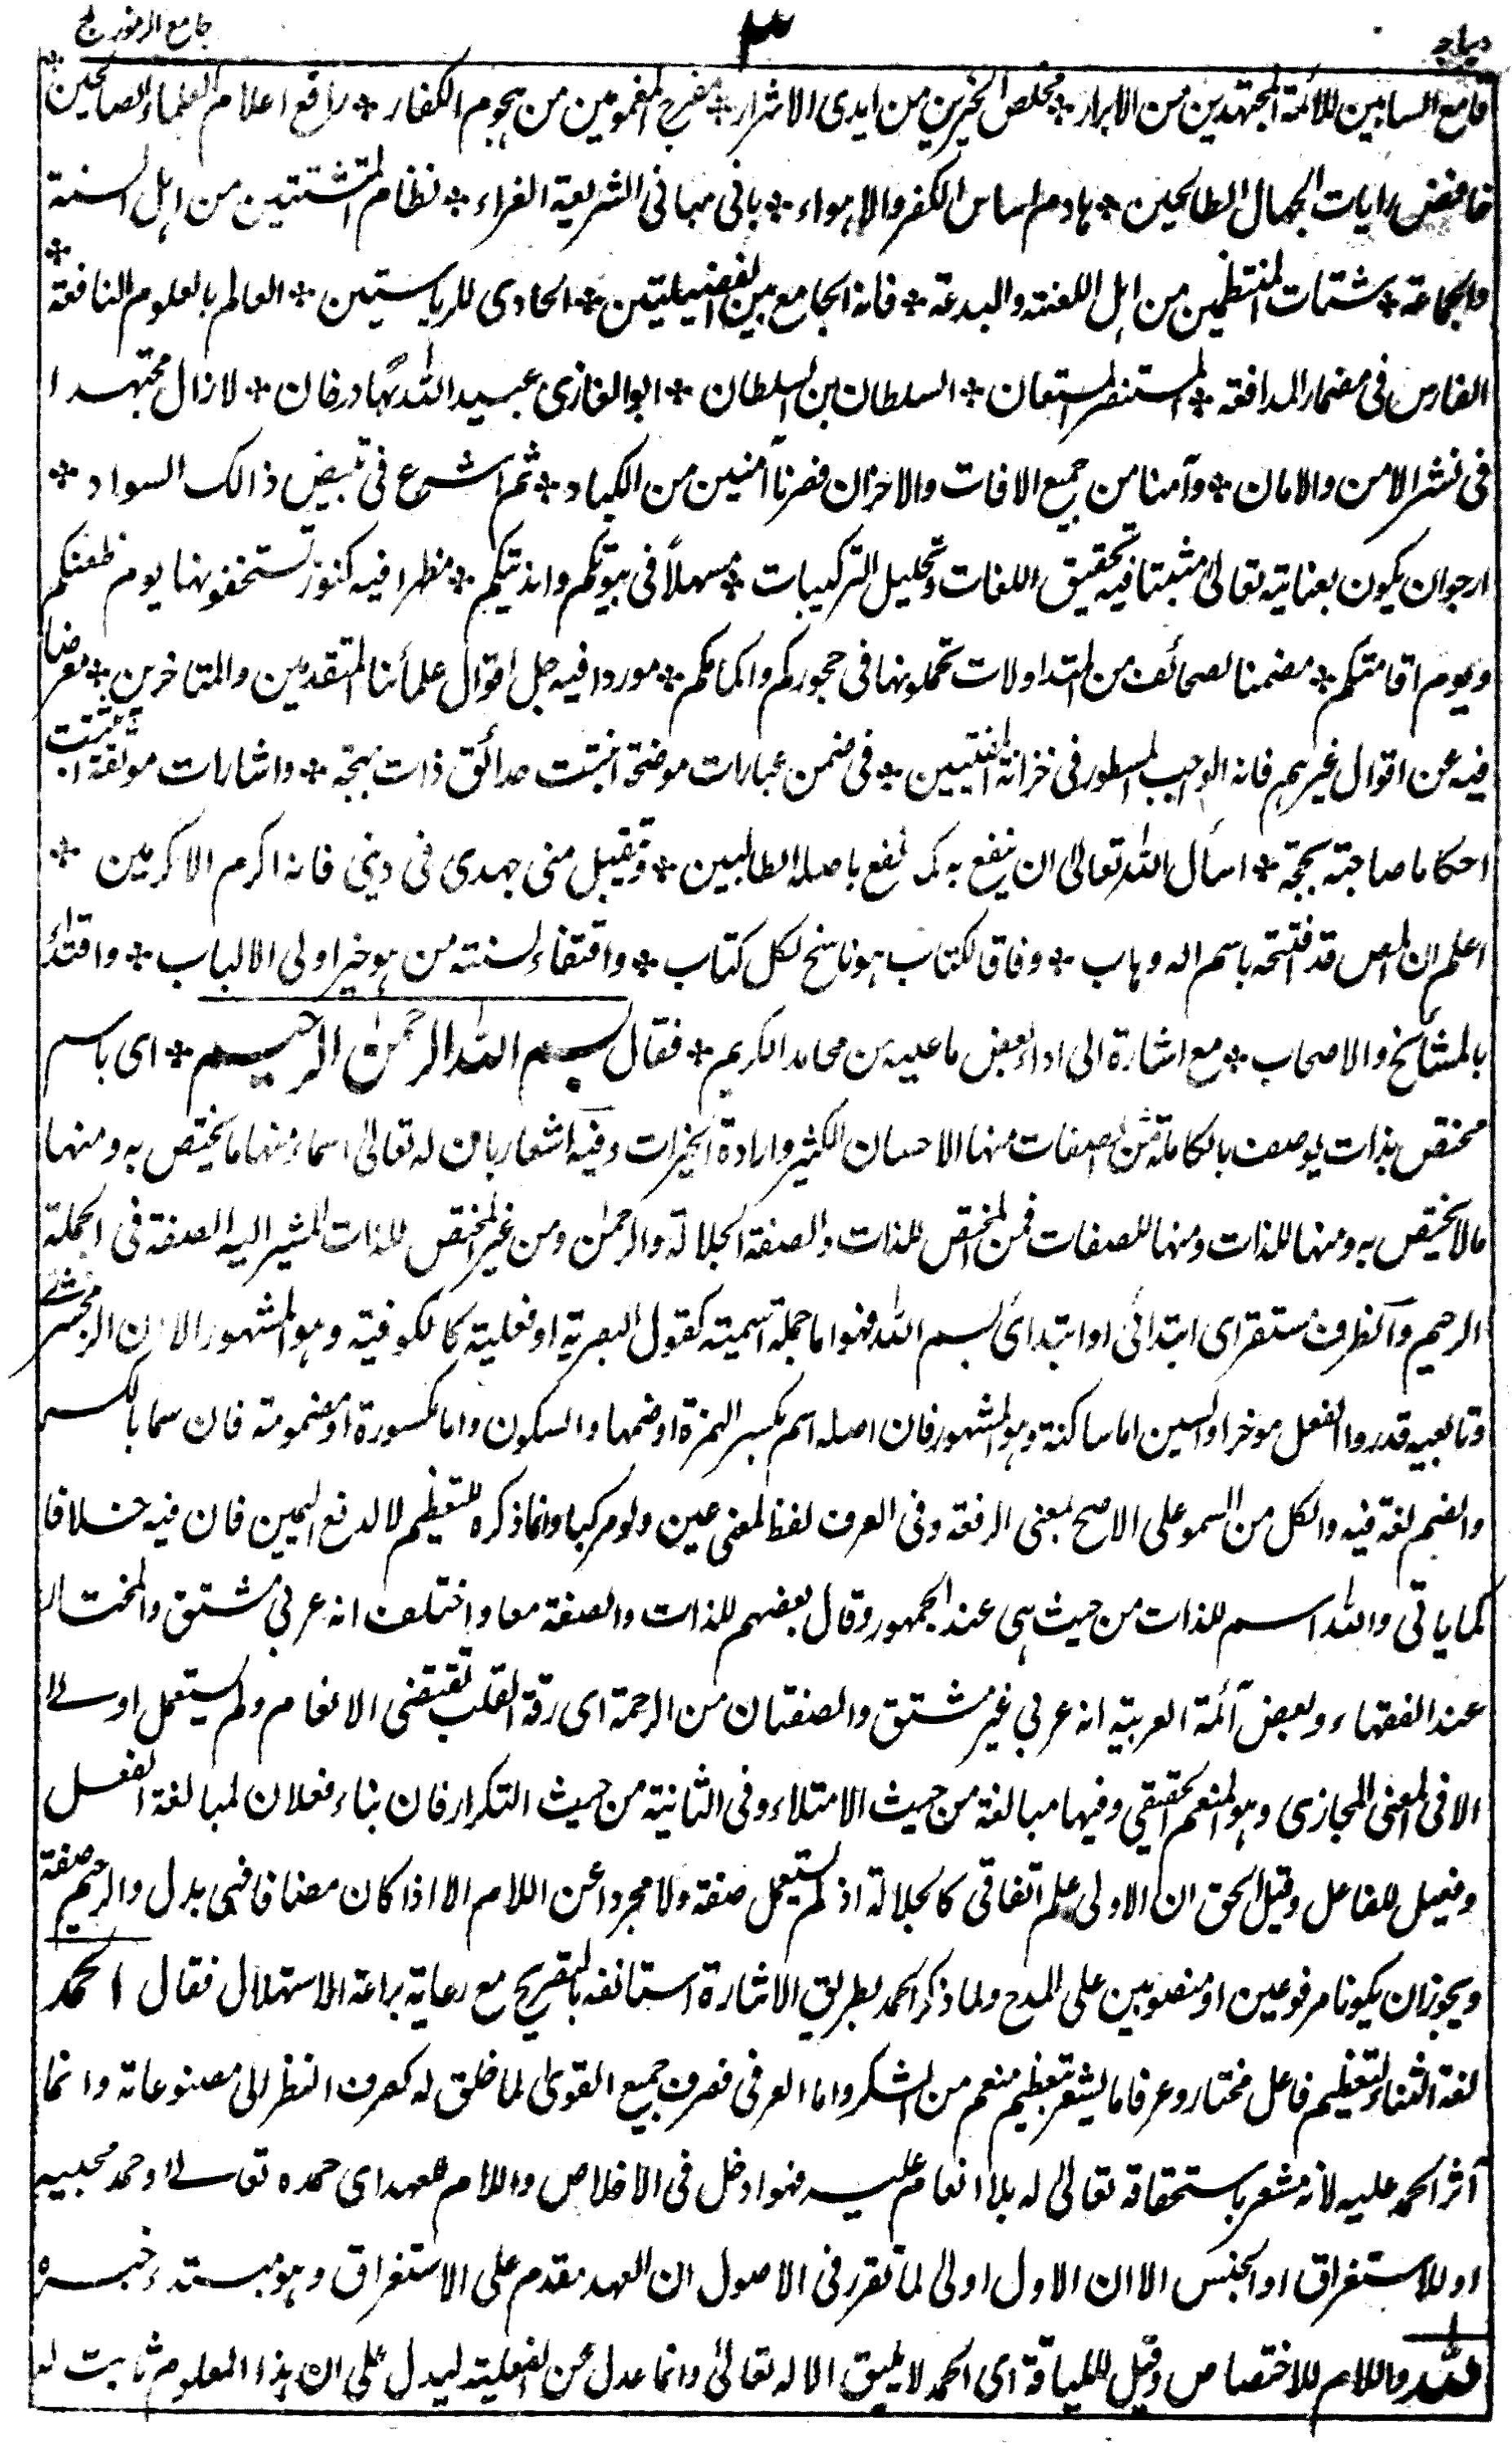 ديباچه ٣ جامع الرموز ج
قامع السابين للائمة المجتهدين من الابرار * مخلص الخيرين من ايدى الاشرار * مفرح المغمومين من هجوم الكفار * رافع اعلام العلماء الصالحين *
خافض رايات الجهال الطالحين * هادم اساس الكفر والاهواء * بانى مبانى الشريعة الغراء * نظام المتشتتين من اهل السنة
والجماعة * شتات المنتظمين من اهل اللعنة والبدعة * فانه الجامع بين الفضيلتين * الحاوى للرياستين * العالم بالعلوم النافعة *
الفارس فى مضمار المدافعة * المستنصر المستعان * السلطان بن السلطان * ابو الغازى عبيد الله بهادر خان * لا زال مجتهدا
فى نشر الامن والامان * وآمنا من جميع الافات والاحزان فصرنا آمنين من الكباد * ثم اشرع فى تبييض ذالك السواد *
ارجو ان يكون بعنايته تعالى مثبتا فيه تحقيق اللغات وتحليل التركيبات * مسهلا فى بيوتكم وانديتكم * مظهرا فيه كنوز تستخفونها يوم ظعنكم
ويوم اقامتكم * مضمنا لصحائف من المتداولات تحملونها فى حجوركم واكمامكم * موردا فيه جل اقوال علمائنا المتقدمين والمتاخرين * معرضا
فيه عن اقوال غيرهم فانه الواجب المسطور فى خزانة المفتيين * فى ضمن عبارات موضحة انبتت حدائق ذات بهجة * واشارات مونقة اثبتت
احكاما صاحبة بحجة * اسأل الله تعالى ان ينفع به كما نفع باصله الطالبين * وتقبل منى جهدى فى دينى فانه اكرم الاكرمين *
اعلم ان المص قد افتتحه باسم اله وهاب * وفاقا لكتاب هو ناسخ لكل كتاب * واقتفاء لسنة من هو خير اولى الالباب * واقتداء
بالمشائخ والاصحاب * مع اشارة الى اداء بعض ما عليه من محامد الكريم * فقال بسم الله الرحمن الرحيم * اى باسم
مختص بذات يوصف بالكاملة من الصفات منها الاحسان الكثير وارادة الخيرات وفيه اشعار بان له تعالى اسماء منها ما يختص به ومنها
ما لا يختص به ومنها للذات ومنها للصفات فمن المختص للذات والصفة الجلالة والرحمن ومن غير المختص للذات المشير اليه الصفة فى الجملة
الرحيم والظرف مستقر اى ابتدائى او ابتدأى بسم الله فهو اما جملة اسمية كقول البصرية او فعلية كالكوفية وهو المشهور الا ان الزمخشرى
وتابعيه قدروا الفعل موخرا والسين اما ساكنة وهو المشهور فان اصله اسم بكسر الهمزة او ضمها والسكون واما مكسورة او مضمومة فان سما بالكسر
والضم لغة فيه والكل من السمو على الاصح بمعنى الرفعة وفى العرف لفظ لمعنى عين ولو مركبا وانما ذكره للتعظيم لا لدفع اليمين فان فيه خلافا
كما ياتى والله اسم للذات من حيث هى عند الجمهور وقال بعضهم للذات والصفة معا واختلف انه عربى مشتق والمختار
عند الفقهاء وبعض آئمة العربية انه عربى غير مشتق والصفتان من الرحمة اى رقة القلب تقتضى الانعام ولم يستعمل اولى
الا فى المعنى المجازى وهو المنعم الحقيقى وفيها مبالغة من حيث الامتلاء وفى الثانية من حيث التكرار فان بناء فعلان لمبالغة الفعل
وفعيل للفاعل وقيل الحق ان الاولى علم اتفاقى كالجلالة اذ لم يستعمل صفة ولا مجردا عن اللام الا اذا كان مضافا فهى بدل والرحيم صفة
ويجوز ان يكونا مرفوعين او منصوبين على المدح ولما ذكر الحمد بطريق الاشارة استانفه بالتصريح مع رعاية براعة الاستهلال فقال الحمد
لغة الثناء لتعظيم فاعل مختار وعرفا ما يشعر بتعظيم منعم من الشكر واما العرفى فصرف جميع القوى لما خلق له كصرف النظر الى مصنوعاته وانما
آثر الحمد عليه لانه مشعر باستحقاقه تعالى له بلا انعام عليه فهو ادخل فى الاخلاص واللام للعهد اى حمده تعالى او حمد محبيه
او للاستغراق او الجنس الا ان الاول اولى لما تقرر فى الاصول ان العهد مقدم على الاستغراق وهو مبتدء خبره
لله واللام للاختصاص وقيل للياقة اى الحمد لا يليق الا له تعالى وانما عدل عن الفعلية ليدل على ان هذا المعلوم ثابت له